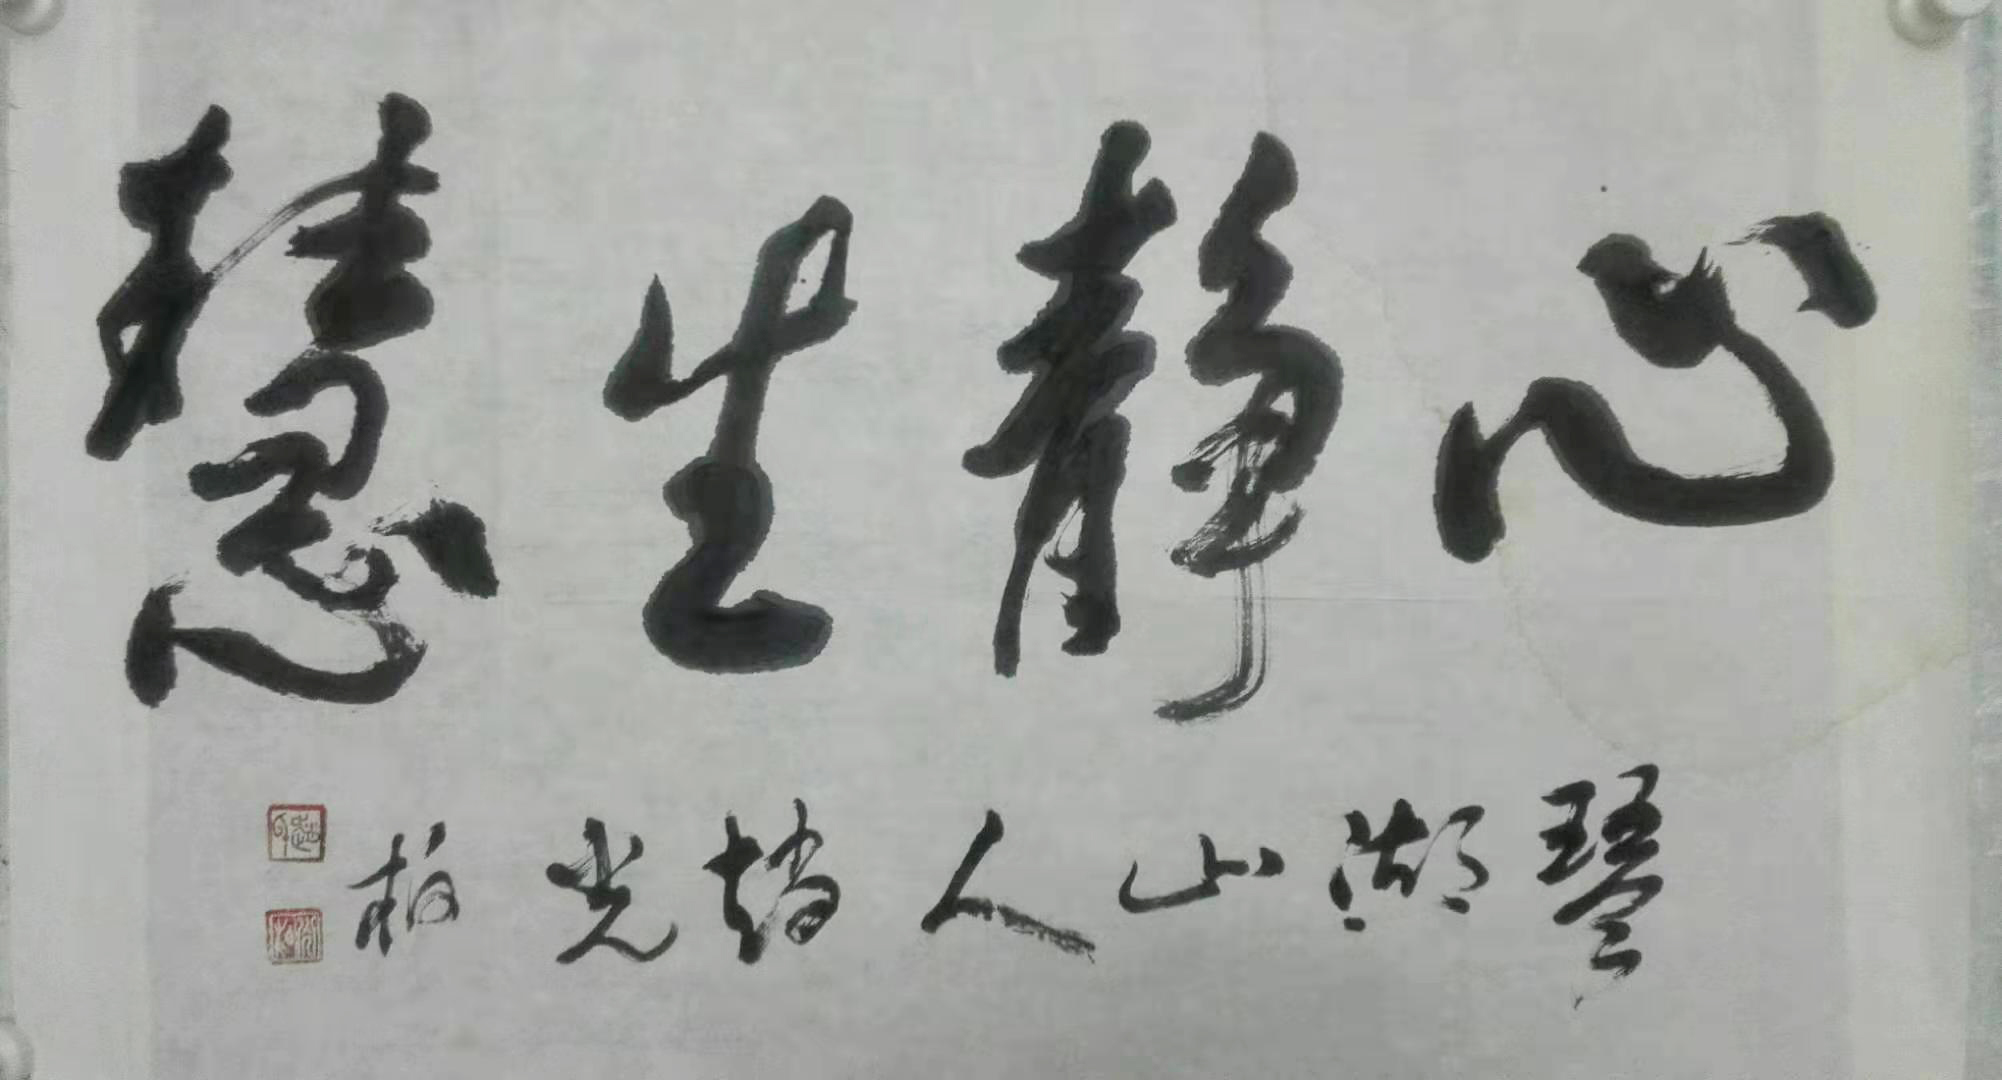 心静生慧
琴湖山人赵光